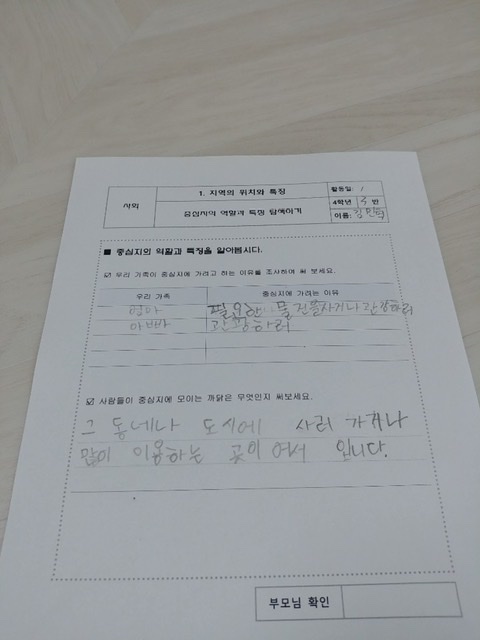 사회
1. 지역의 위치와 특징
중심지의 역할과 특징 탐색하기
활동일: /
4학년 5 반
이름: 김민
■ 중심지의 역할과 특징을 알아봅시다.
☑ 우리 가족이 중심지에 가려고 하는 이유를 조사하여 써 보세요.
우리 가족 중심지에 가려는 이유
엄마 필요한 물건을사거나 관광하러
아빠 관광하러
☑ 사람들이 중심지에 모이는 까닭은 무엇인지 써보세요.
그 동네나 도시에 사러 가거나
많이 이용하는 곳이 어서 입니다.
부모님 확인